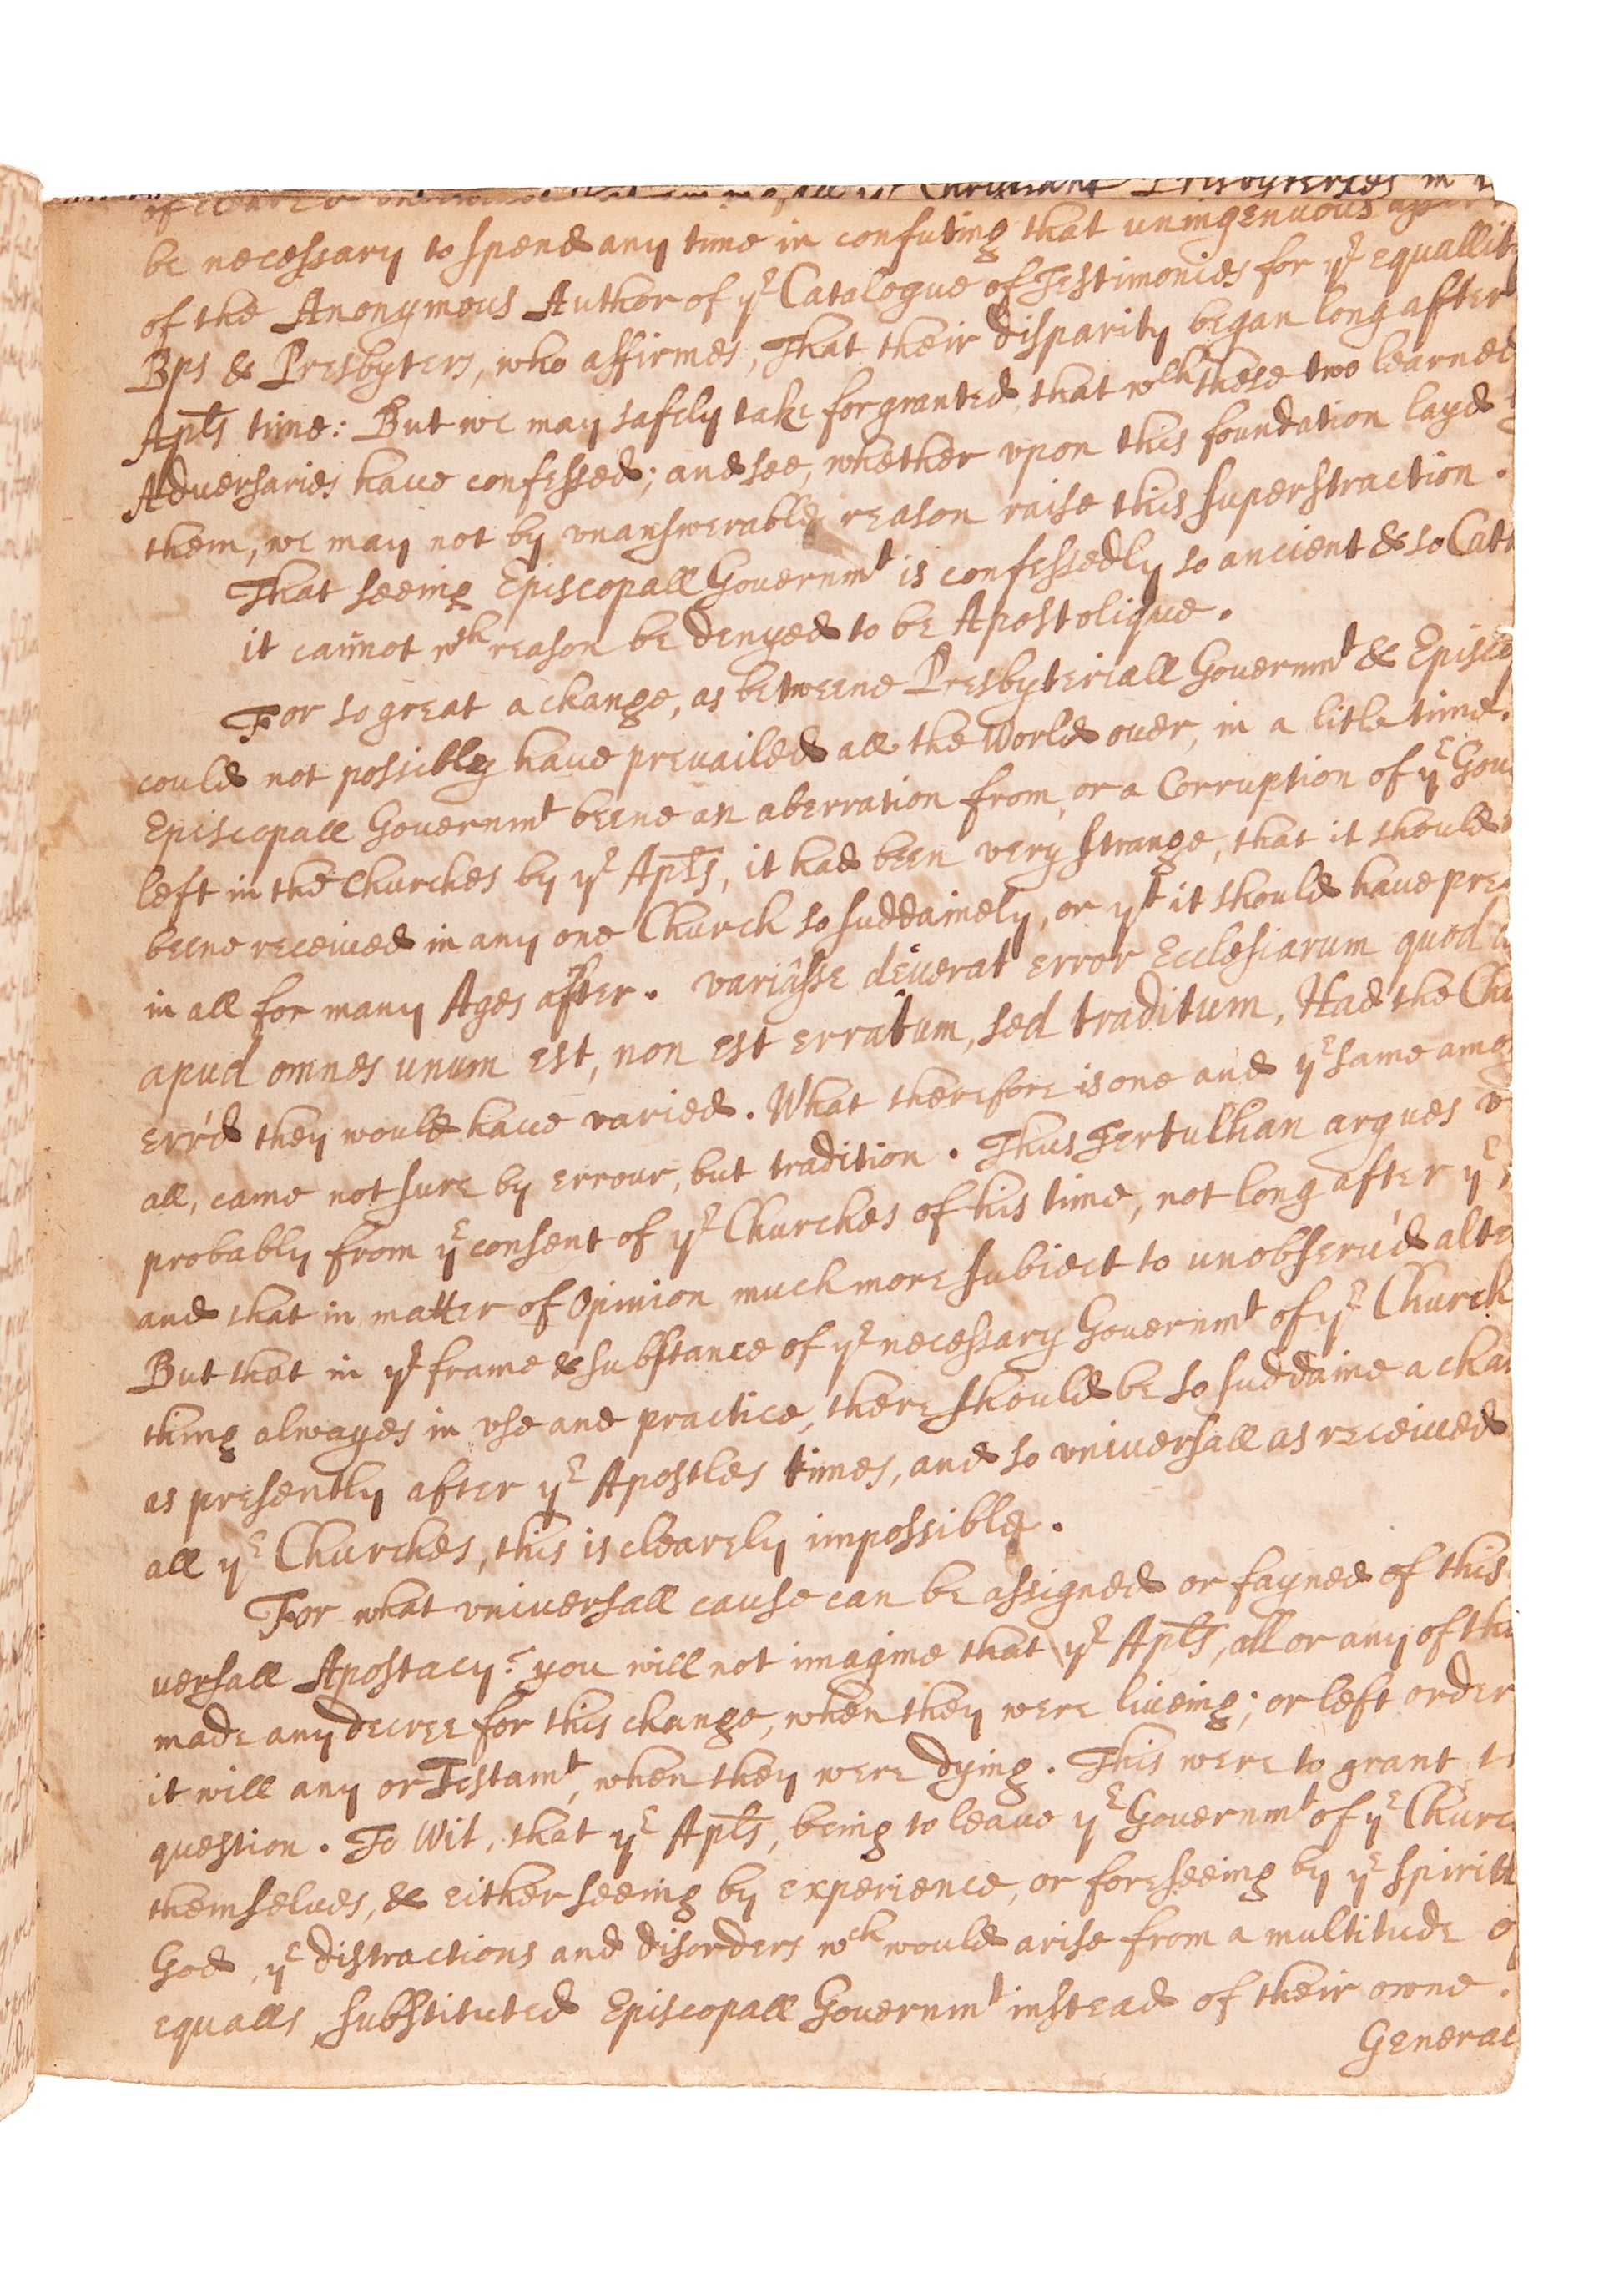 be necessary to spend any time in confuting that uningenuous
of the Anonymous Author of yᵉ Catalogue of Testimonies for yᵉ equallit
Bps & Presbyters, who affirmes, That their disparity began long after
Apłs time: But we may safely take for granted that wᶜʰ these two learned
Adversaries haue confessed; and see, whether vpon this foundation layd
them, we may not by vnanswerable reason raise this superstraction.
That seeing Episcopall Gouernmᵗ is confessedly so ancient & so Cat
it cañnot wᵗʰ reason be denyed to be Apostolique.
For so great a change, as betweene Presbyteriall Gouernmᵗ & Episco
could not possibly haue prevailed all the World ouer, in a litle time.
Episcopall Gouernmᵗ beene an aberration from, or a Corruption of yᵉ Gou
left in the Churches by yᵉ Apłs, it had been very strange, that it should
beene receiued in any one Church so suddainely, or yᵗ it should haue pre
in all for many Ages after. variâsse deuerat error Ecclesiarum quod
apud omnes unum est, non est erratum, sed traditum, Had the Chu
err'd they would haue varied. What therefore is one and yᵉ same amo
all, came not sure by errour, but tradition. Thus Tertullian argues v
probably from yᵉ consent of yᵉ Churches of his time, not long after yᵉ
and that in matter of Opinion much more subiect to unobseru'd alte
But that in yᵉ frame & substance of yᵉ necessary Gouernmᵗ of yᵉ Church
thing alwayes in vse and practice, there should be so suddaine a cha
as presently after yᵉ Apostles times, and so vniuersall as receiued
all yᵉ Churches, this is clearely impossible.
For what vniuersall cause can be assigned or fayned of this
uersall Apostacy? you will not imagine that yᵉ Apłs, all or any of the
made any decree for this change, when they were liueing; or left order
it will any or Testamᵗ, when they were dying. This were to grant t
question. To Wit, that yᵉ Apłs, being to leaue yᵉ Gouernmᵗ of yᵉ Churc
themselues, & either seeing by experience, or foreseeing by yᵉ spiritt
God, yᵉ distractions and disorders wᶜʰ would arise from a multitude o
equalls, substituted Episcopall Gouernmᵗ instead of their owne.
General